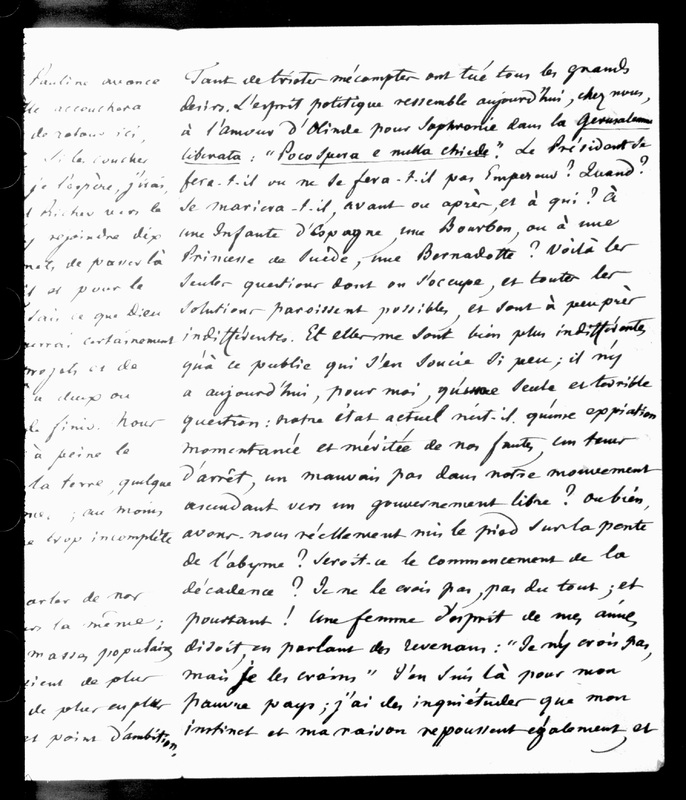 Pauline avance
accouchera
de retour ici,
Si le coucher
je l'espère, j'irai
Richer vers le
rejoindre dix
de passer là
et pour le
Sais ce que Dieu
certainement
projets et de
deux ou
finir. Nour
à peine le
la terre, quelque
; au moins
trop incomplète
parler de nos
la même ;
masses populaires
de plus
de plus en plus
et point d'ambition,
Tant de tristes mécomptes ont tué tous les grands
desirs. L'esprit politique ressemble aujourd'hui, chez nous,
à l'amour d'Olinde pour Sophronie dans la Gerusalemme
liberata : "Poco spera e nulla chiede". Le Président se
fera-t-il ou ne se fera-t-il pas Empereur ? Quand ?
Se mariera-t-il, avant ou après, et à qui ? À
une Infante d'Espagne, une Bourbon, ou à une
Princesse de Suède, une Bernadotte ? Voilà les
seules questions dont on s'occupe, et toutes les
solutions paroissent possibles, et sont à peu près
indifférentes. Et elles me sont bien plus indifférentes
qu'à ce public qui s'en soucie si peu ; il n'y
a aujourd'hui, pour moi, qu'une seule et terrible
question : notre état actuel n'est-il qu'une expiation
momentanée et méritée de nos fautes, un temps
d'arrêt, un mauvais pas dans notre mouvement
ascendant vers un gouvernement libre ? ou bien,
avons-nous réellement mis le pied sur la pente
de l'abyme ? Seroit-ce le commencement de la
décadence ? Je ne le crois pas, pas du tout ; et
pourtant ! Une femme d'esprit de mes amies
disoit, en parlant des revenans : "Je n'y crois pas,
mais je les crains" J'en suis là pour mon
pauvre pays ; j'ai des inquiétudes que mon
instinct et ma raison repoussent également, et